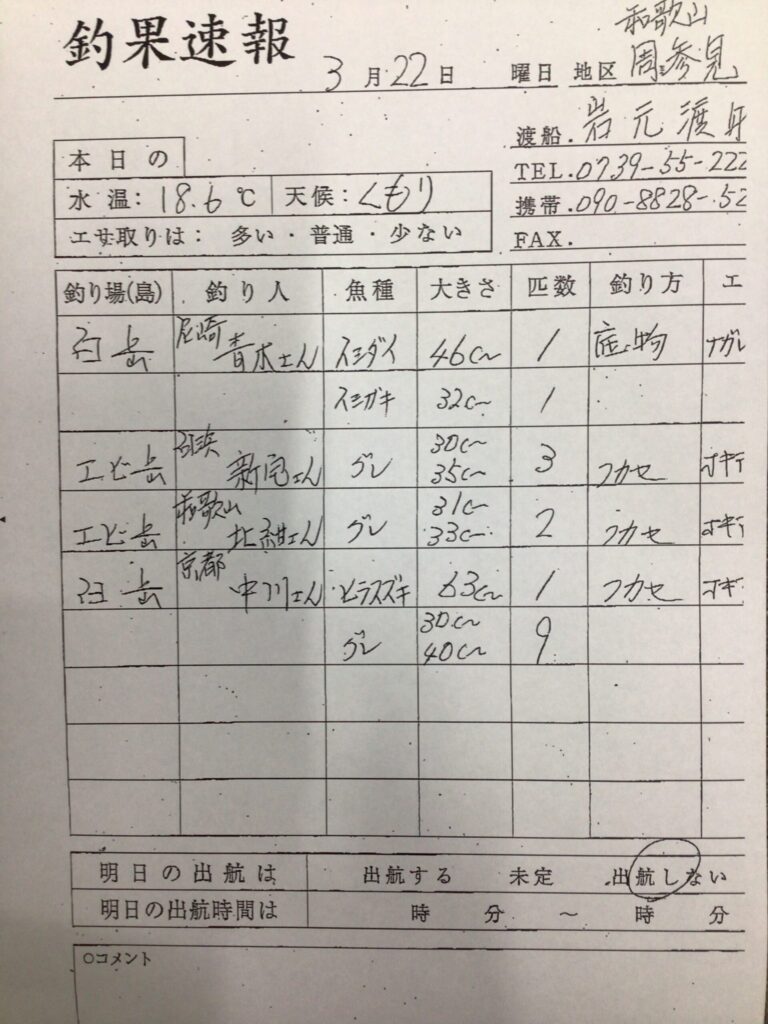 釣果速報
3月22日 曜日 地区 和歌山 周参見
渡船. 岩元渡
TEL.0739-55-222
携帯.090-8828-52
FAX.
本日の
水温: 18.6℃ 天候: くもり
エサ取りは: 多い・普通・少ない
釣り場(島) 釣り人 魚種 大きさ 匹数 釣り方 エ
尼崎 青木さん イシダイ 46c〜 1 底物 ナガレ
イシガキ 32c〜 1
エビ島 新宅さん グレ 30c〜 35c〜 3 フカセ オキア
エビ島 和歌山 北紺さん グレ 31c〜 33c〜 2 フカセ オキア
京都 中川さん ヒラスズキ 63c〜 1 フカセ オキ
グレ 30c〜 40c〜 9
明日の出航は 出航する 未定 出航しない
明日の出航時間は 時 分 〜 時 分
○コメント